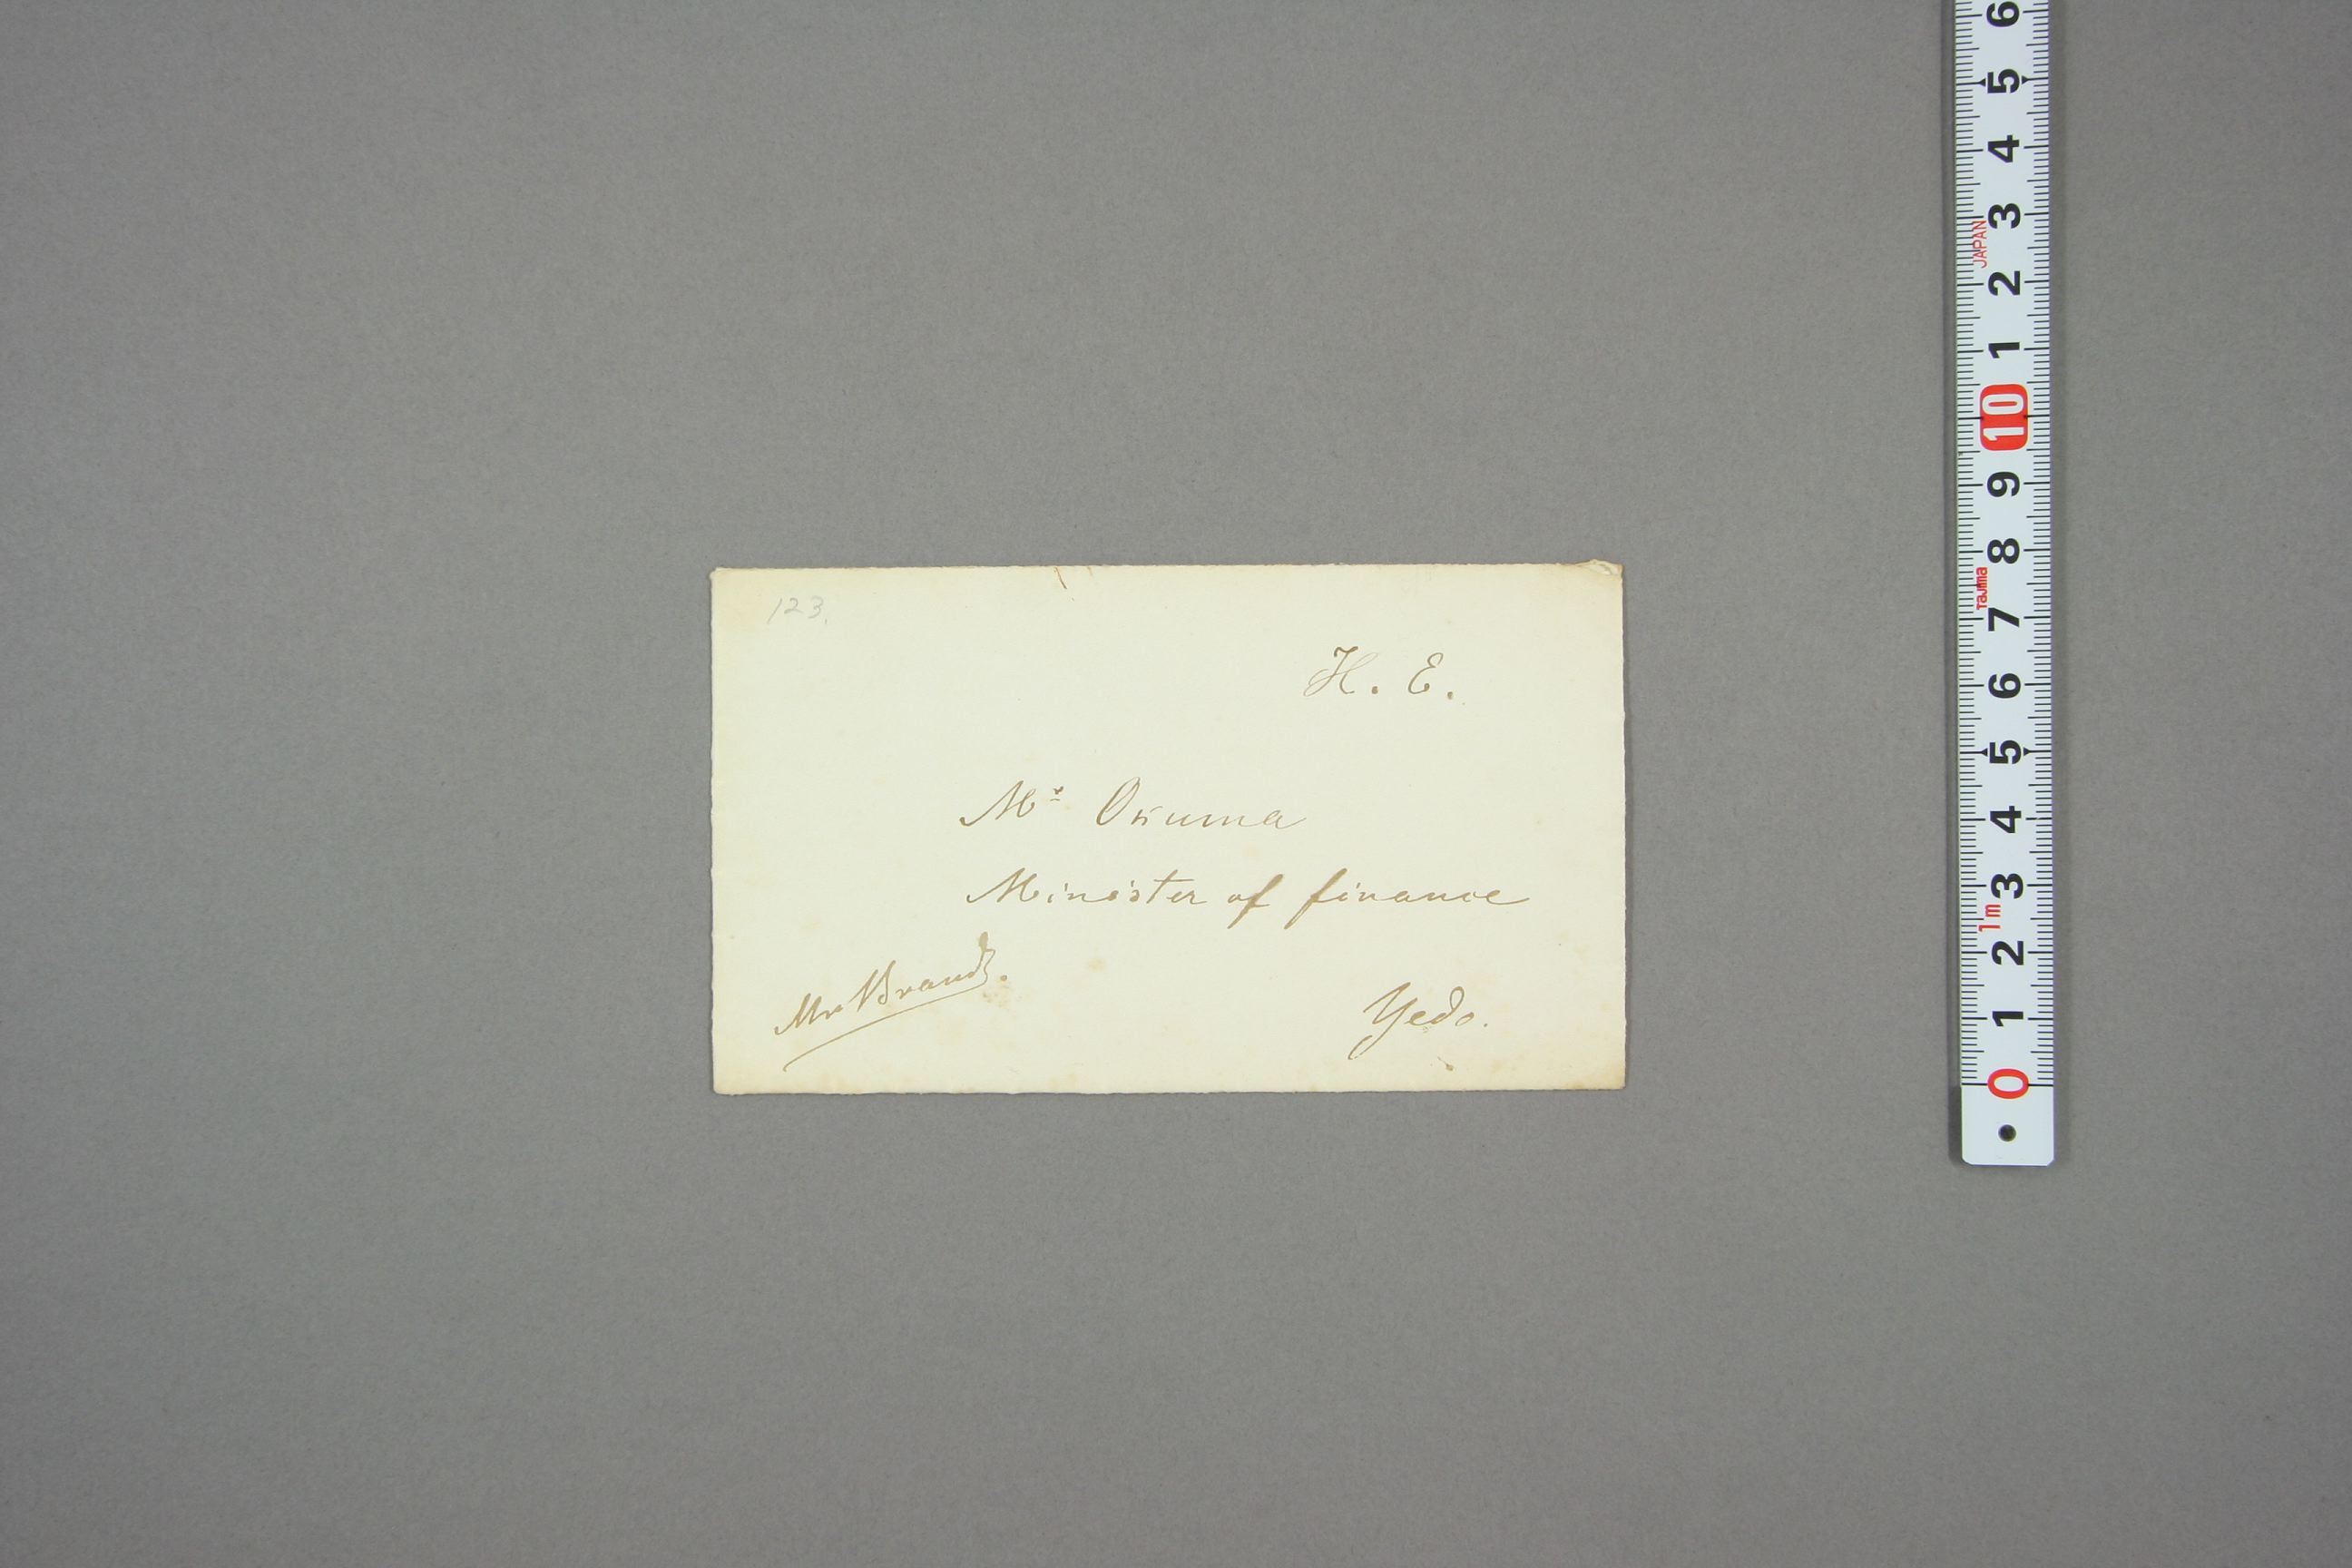 123.
H. E.
Mr Okuma
Minister of finance
Mr Brandt.
Yedo.
6
5
4
3
JAPAN
2
1
10
9
8
Tajima
7
6
5
4
3
1m
2
1
0